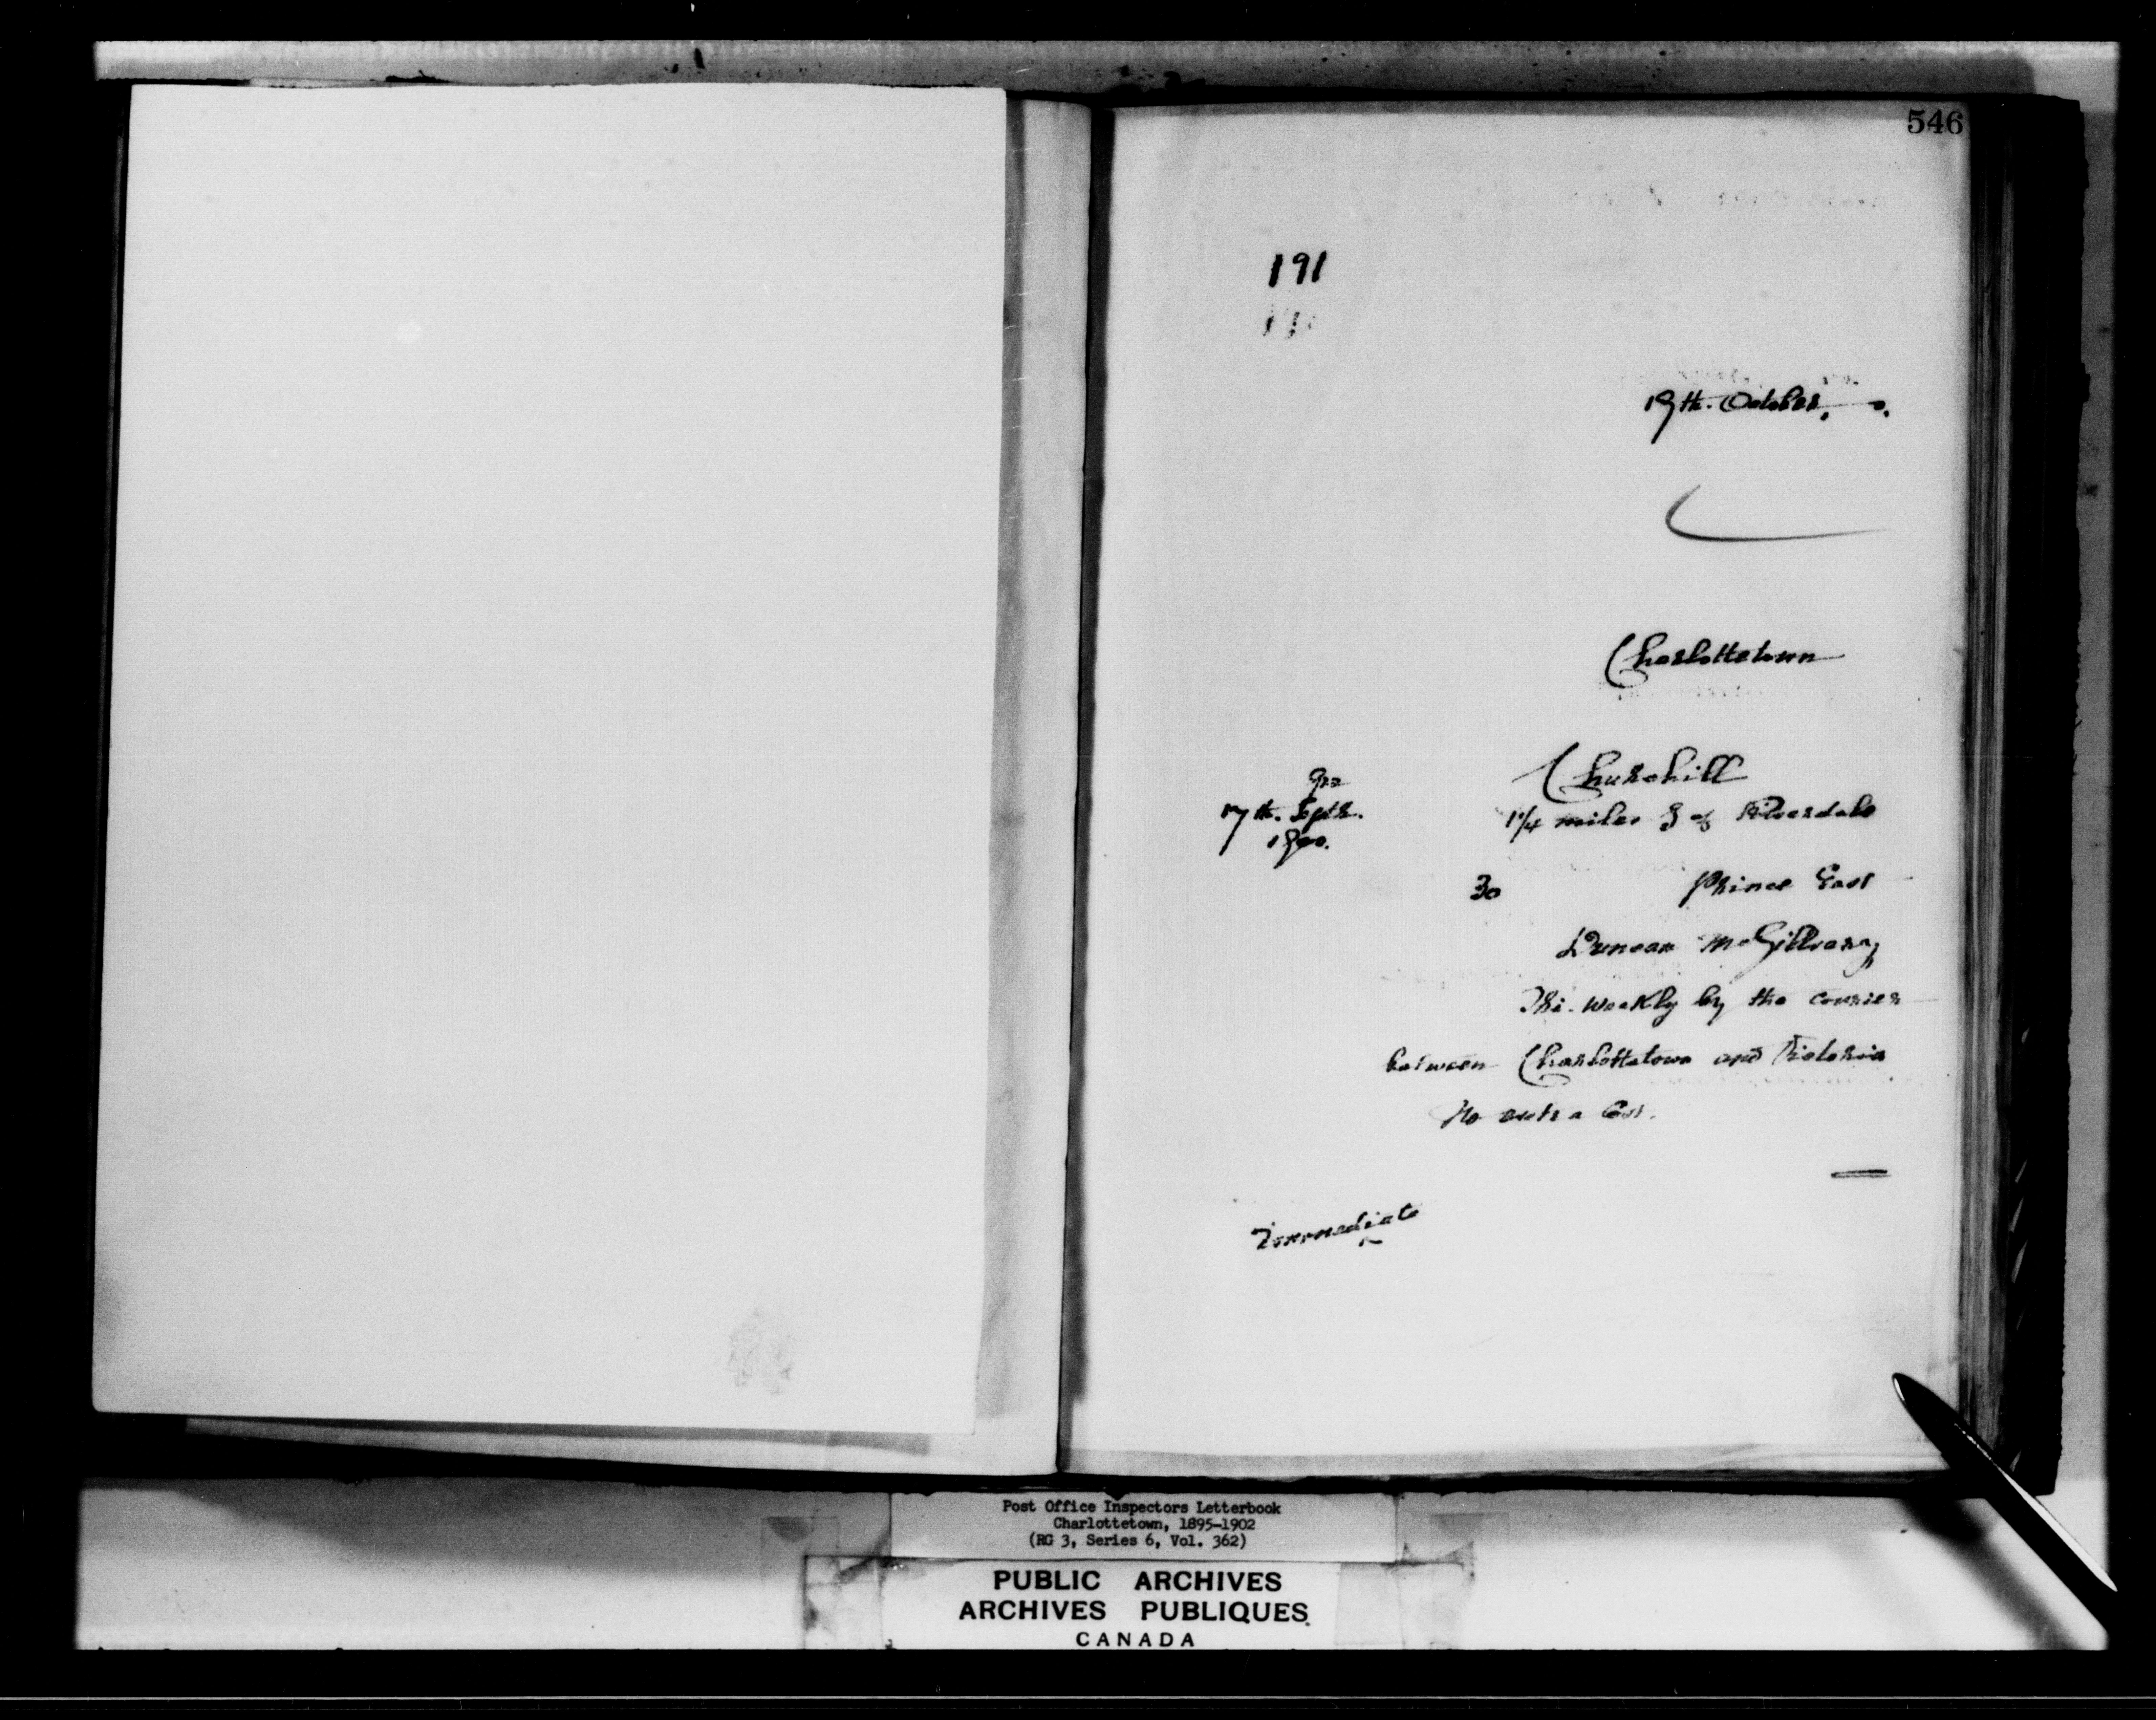 546
191
19th. October, 0.
Charlottetown
Churchill
17th. Septr.
1900.
1 1/4 miles S of Riverdale
30 Prince East
Duncan McGillvary
Tri-weekly by the courier
between Charlottetown and Victoria
No extra Cost.
Immediate
Post Office Inspectors Letterbook
Charlottetown, 1895-1902
(RG 3, Series 6, Vol. 362)
PUBLIC ARCHIVES
ARCHIVES PUBLIQUES
CANADA